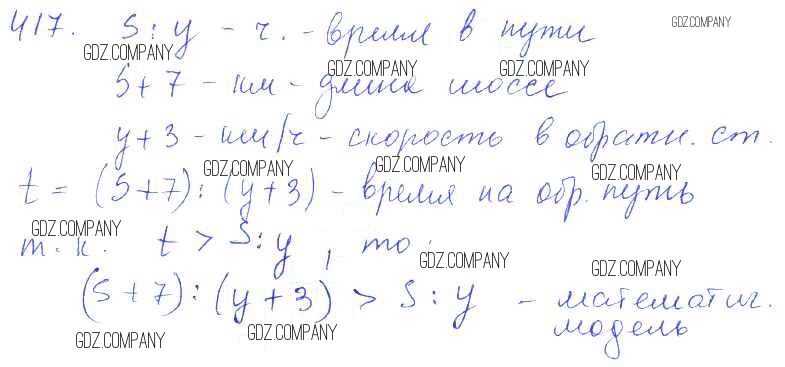 417. S : y - ч. - время в пути
S + 7 - км - длина шоссе
y + 3 - км/ч - скорость в обратн. ст.
t = (S + 7) : (y + 3) - время на обр. путь
т. к. t > S : y, то :
(S + 7) : (y + 3) > S : y - математич.
модель
GDZ.COMPANY
GDZ.COMPANY
GDZ.COMPANY
GDZ.COMPANY
GDZ.COMPANY
GDZ.COMPANY
GDZ.COMPANY
GDZ.COMPANY
GDZ.COMPANY
GDZ.COMPANY
GDZ.COMPANY
GDZ.COMPANY